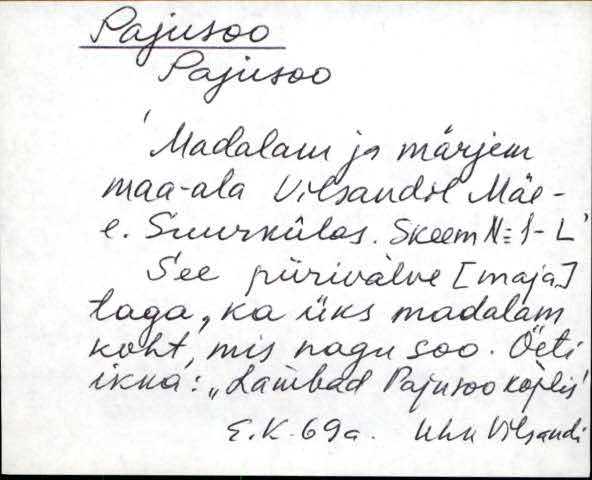 Pajusoo
Pajusoo
'Madalam ja märjem
maa-ala Vilsandil Mäe-
e. Suurkülas. Skeem N= 1-L'
See piirivalve [maja]
taga, ka üks madalam
koht, mis nagu soo. Öeti
ikka: „Lambad Pajusoo koplis'
E.K. 69a. Vilsandi